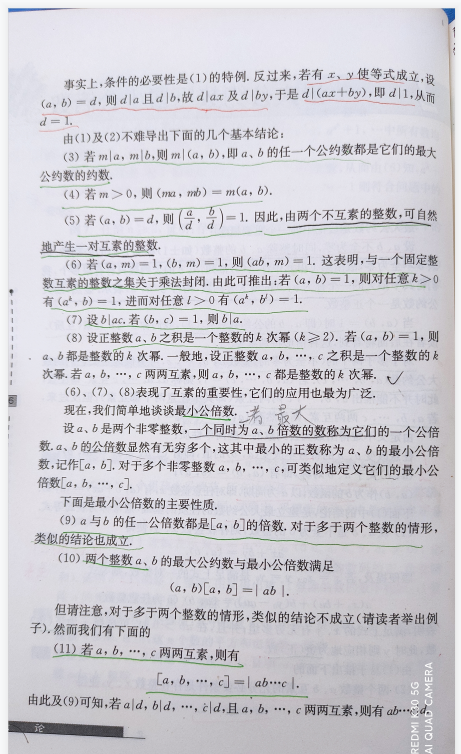 事实上,条件的必要性是(1)的特例. 反过来,若有 x、y 使等式成立,设
(a, b)=d, 则 d|a 且 d|b,故 d|ax 及 d|by,于是 d|(ax+by),即 d|1,从而
d=1.
由(1)及(2)不难导出下面的几个基本结论:
(3) 若 m|a, m|b,则 m|(a, b),即 a、b 的任一个公约数都是它们的最大
公约数的约数.
(4) 若 m>0, 则 (ma, mb)=m(a, b).
(5) 若 (a, b)=d, 则 (a/d, b/d)=1. 因此,由两个不互素的整数,可自然
地产生一对互素的整数.
(6) 若 (a, m)=1, (b, m)=1, 则 (ab, m)=1. 这表明,与一个固定整
数互素的整数之集关于乘法封闭. 由此可推出:若 (a, b)=1, 则对任意 k>0
有 (a^k, b)=1, 进而对任意 l>0 有 (a^k, b^l)=1.
(7) 设 b|ac. 若 (b, c)=1, 则 b|a.
(8) 设正整数 a、b 之积是一个整数的 k 次幂 (k≥2). 若 (a, b)=1, 则
a、b 都是整数的 k 次幂. 一般地,设正整数 a, b, …, c 之积是一个整数的 k
次幂. 若 a, b, …, c 两两互素,则 a, b, …, c 都是整数的 k 次幂.
(6)、(7)、(8)表现了互素的重要性,它们的应用也最为广泛.
现在,我们简单地谈谈最小公倍数.
最大
设 a、b 是两个非零整数,一个同时为 a、b 倍数的数称为它们的一个公倍
数. a、b 的公倍数显然有无穷多个,这其中最小的正数称为 a、b 的最小公倍
数,记作[a, b]. 对于多个非零整数 a, b, …, c,可类似地定义它们的最小公
倍数[a, b, …, c].
下面是最小公倍数的主要性质.
(9) a 与 b 的任一公倍数都是[a, b]的倍数. 对于多于两个整数的情形,
类似的结论也成立.
(10) 两个整数 a、b 的最大公约数与最小公倍数满足
(a, b)[a, b]=| ab |.
但请注意,对于多于两个整数的情形,类似的结论不成立(请读者举出例
子). 然而我们有下面的
(11) 若 a, b, …, c 两两互素,则有
[a, b, …, c]=| ab…c |.
由此及(9)可知,若 a|d, b|d, …, c|d,且 a, b, …, c 两两互素,则有 ab…c|d.
REDMI K30 5G
AI QUAD CAMERA